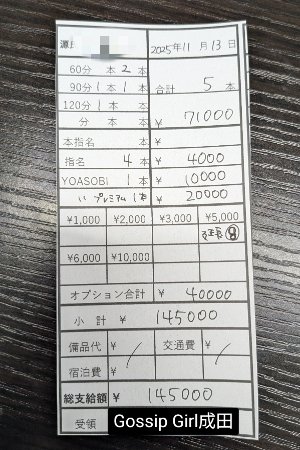 源氏 2025年11月13日
60分 本 2本
90分 1本 1本 合計 5本
120分 1本 本
分 本 本 ¥ 71000
本指名 本 ¥
指名 4本 ¥ 4000
YOASOBI 1本 ¥ 10000
プレミアム 1本 ¥ 20000
¥1,000 ¥2,000 ¥3,000 ¥5,000
⑧
¥6,000 ¥10,000
オプション合計 ¥ 40000
小計 ¥ 145000
備品代 ¥ / 交通費 ¥ /
宿泊費 ¥ /
総支給額 ¥ 145000
受領
Gossip Girl成田